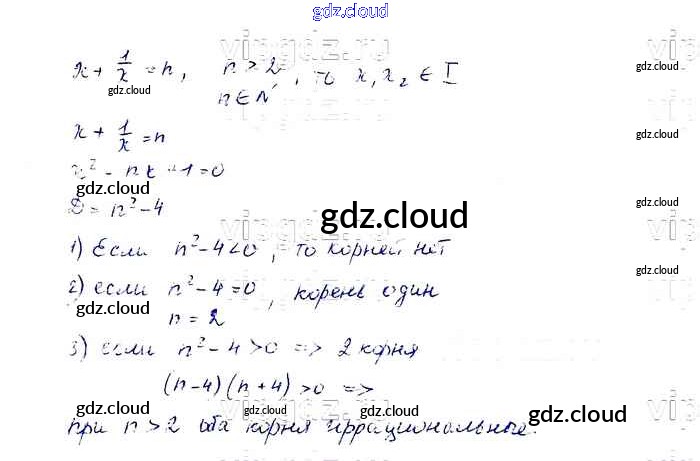 gdz.cloud
x + 1/x = n, n > 2, n ∈ N, то x₁, x₂ ∈ I
gdz.cloud
x + 1/x = n
gdz.cloud
x² - nx + 1 = 0
gdz.cloud
gdz.cloud
D = n² - 4
gdz.cloud
1) Если n² - 4 < 0, то корней нет
gdz.cloud
2) если n² - 4 = 0, корень один
gdz.cloud
n = 2
3) если n² - 4 > 0 => 2 корня
(n-4)(n+4) > 0 =>
gdz.cloud gdz.cloud gdz.cloud gdz.cloud gdz.cloud
при n > 2 оба корня иррациональные.